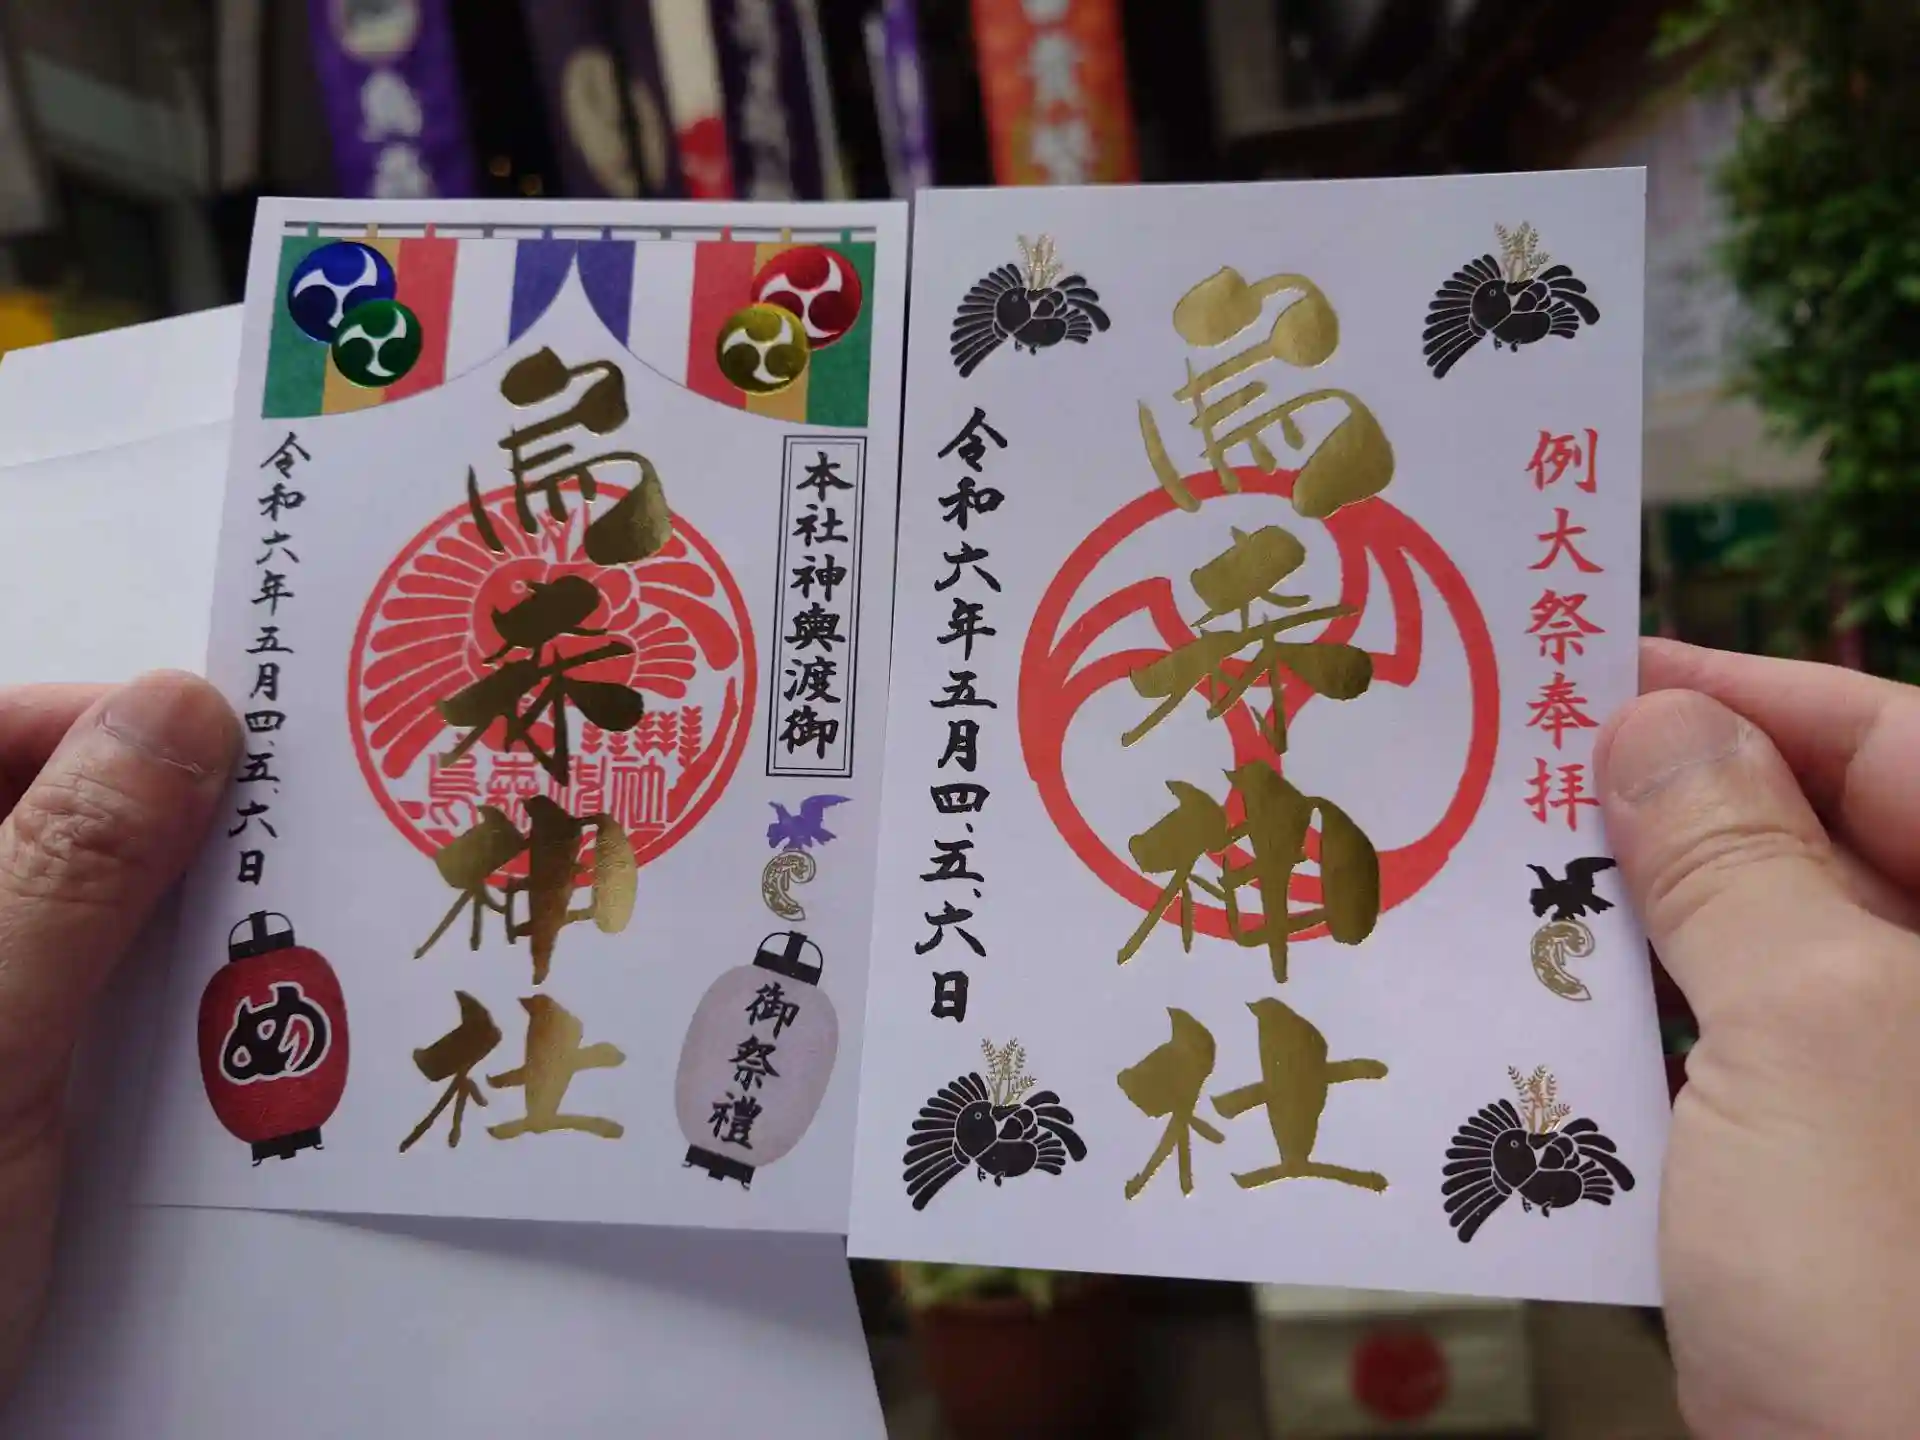 烏森神社
本社神輿渡御
令和六年五月四、五、六日
烏森神社
め
御祭禮
烏森神社
例大祭奉拝
令和六年五月四、五、六日